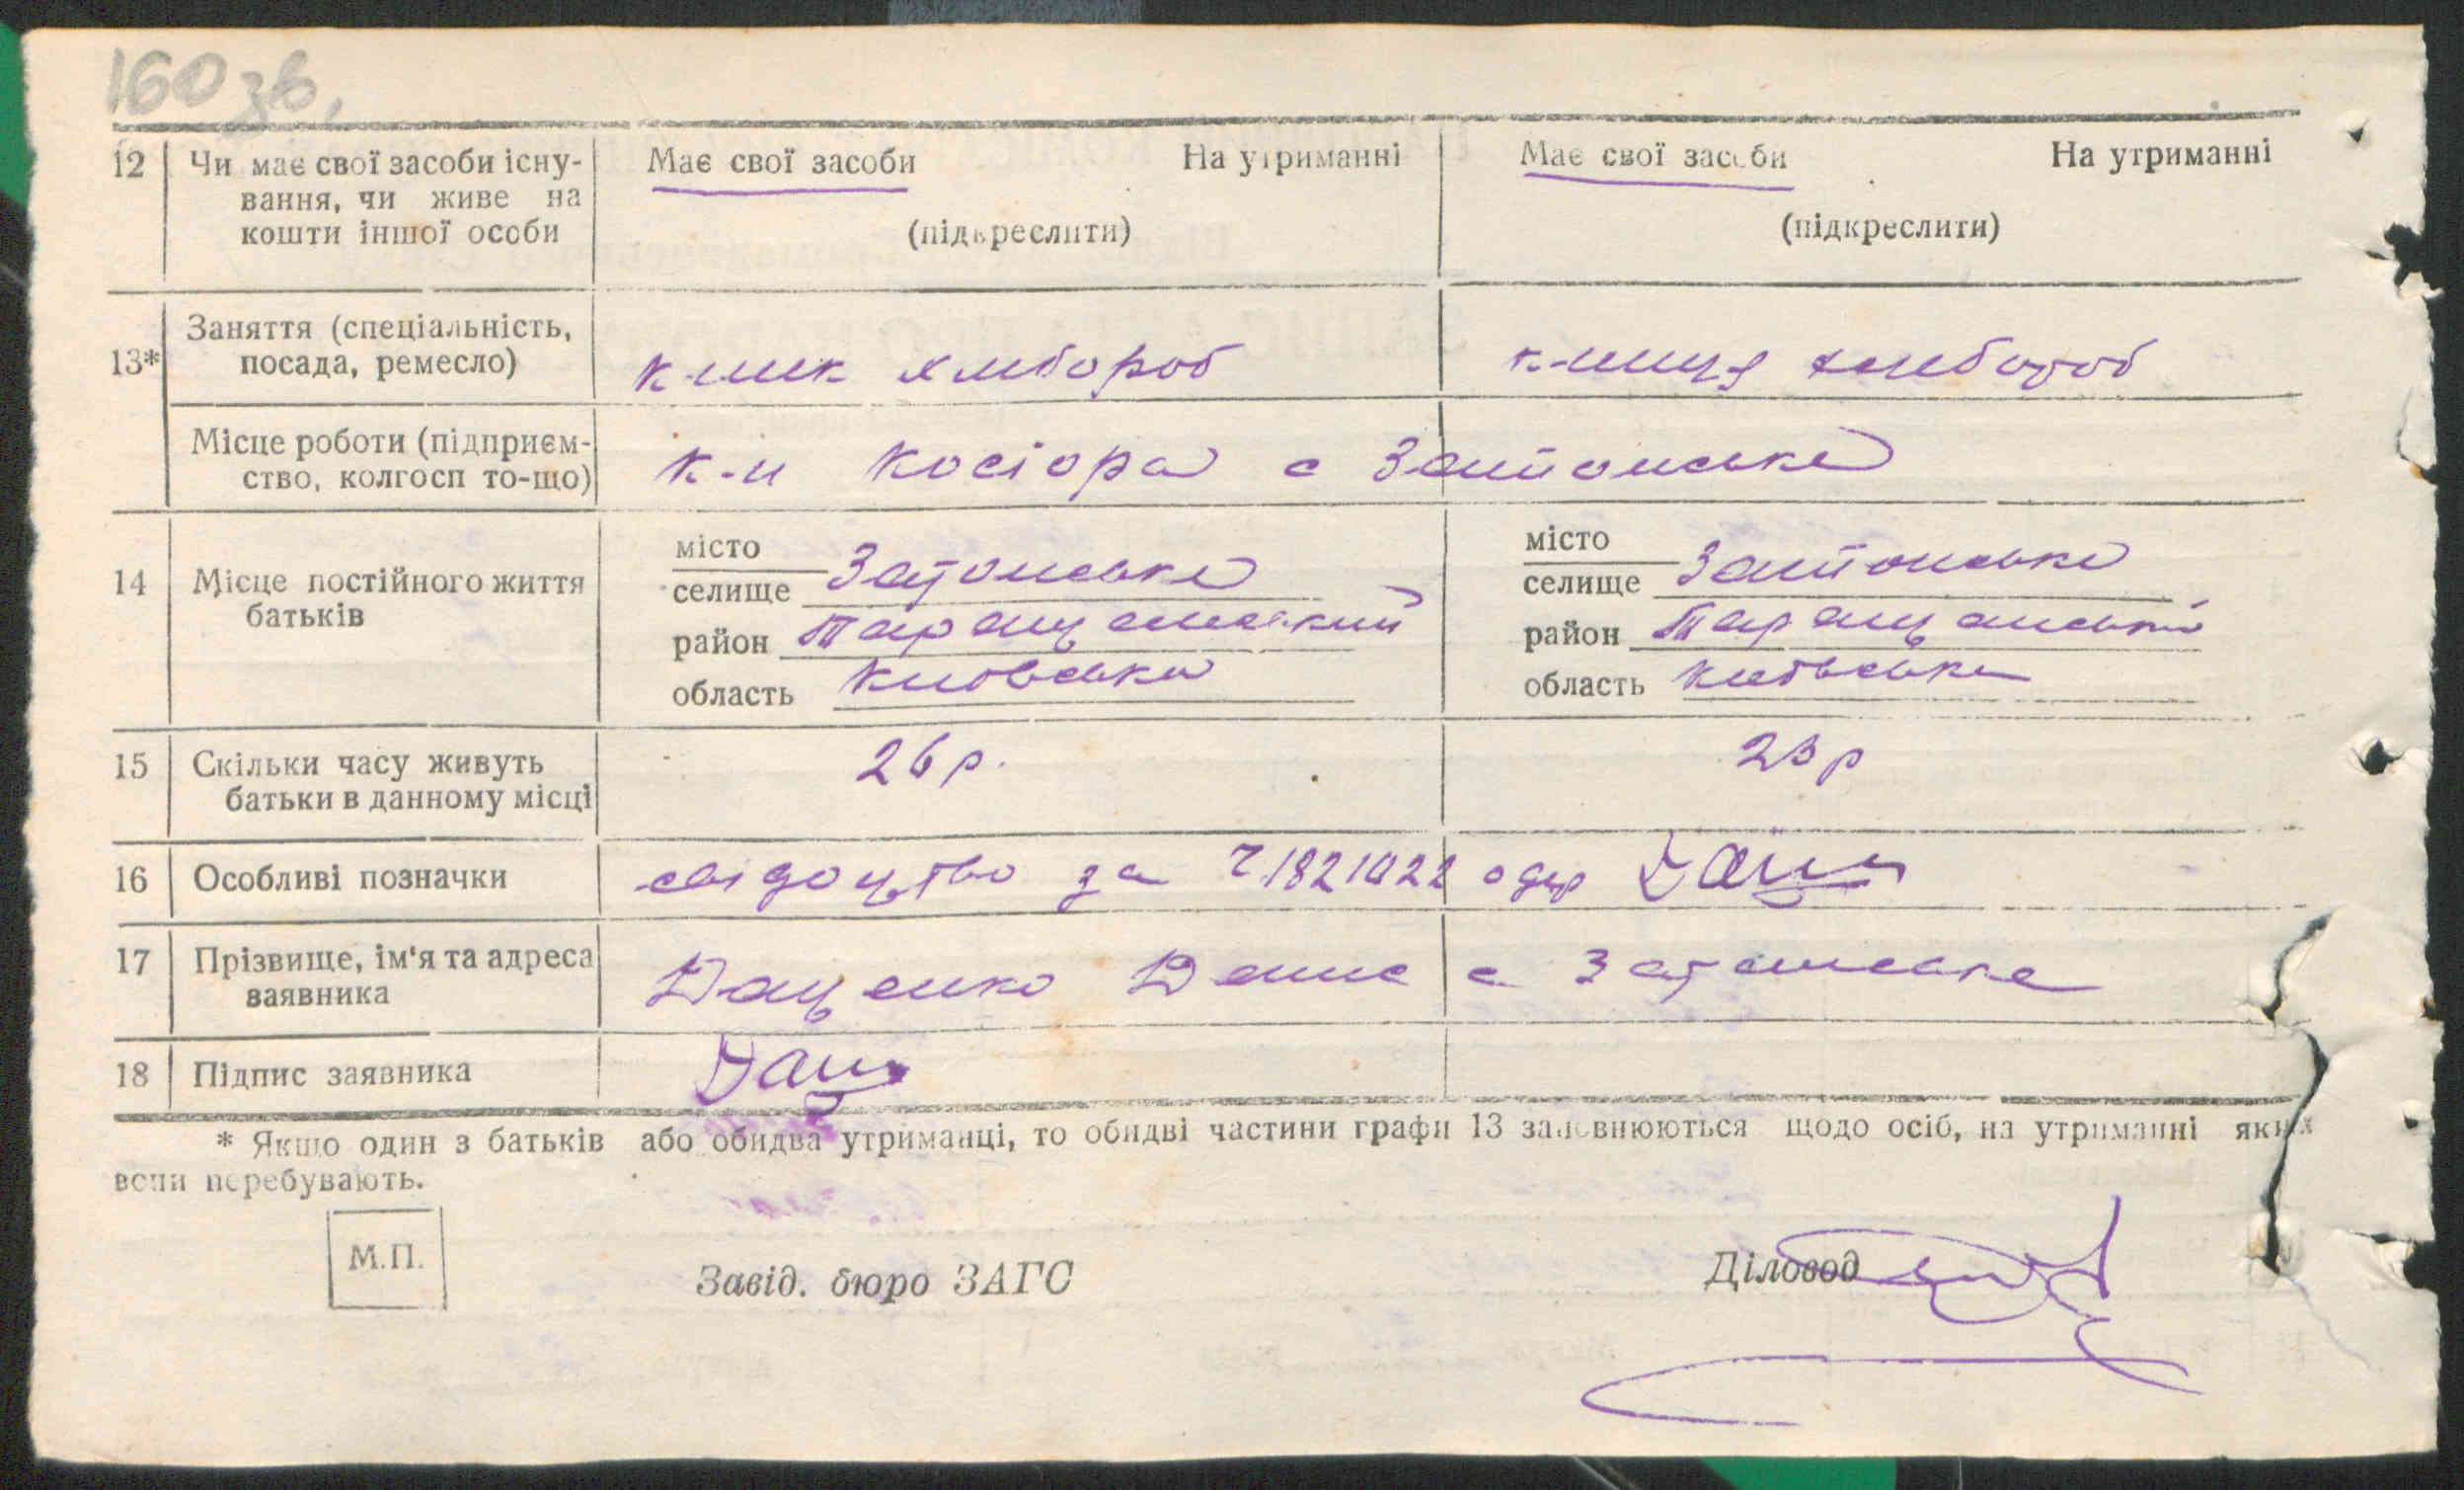 160 зв.
12 Чи має свої засоби існу- Має свої засоби На утриманні Має свої засоби На утриманні
вання, чи живе на
кошти іншої особи (підкреслити) (підкреслити)
13* Заняття (спеціальність,
посада, ремесло) к-ник хлібороб к-ниця хлібороб
Місце роботи (підприєм-
ство, колгосп то-що) к-п Косіора с Затонське
14 Місце постійного життя
батьків
місто
селище Затонське
район Таращанський
область Київська
місто
селище Затонське
район Таращанський
область Київська
15 Скільки часу живуть
батьки в данному місці 26 р. 23 р
16 Особливі позначки свідоцтво за одер Дац
17 Прізвище, ім'я та адреса
заявника Даценко Денис с Затонське
18 Підпис заявника Дац
* Якщо один з батьків або обидва утриманці, то обидві частини графи 13 заповнюються щодо осіб, на утриманні яких
вони перебувають.
М.П.
Завід. бюро ЗАГС
Діловод